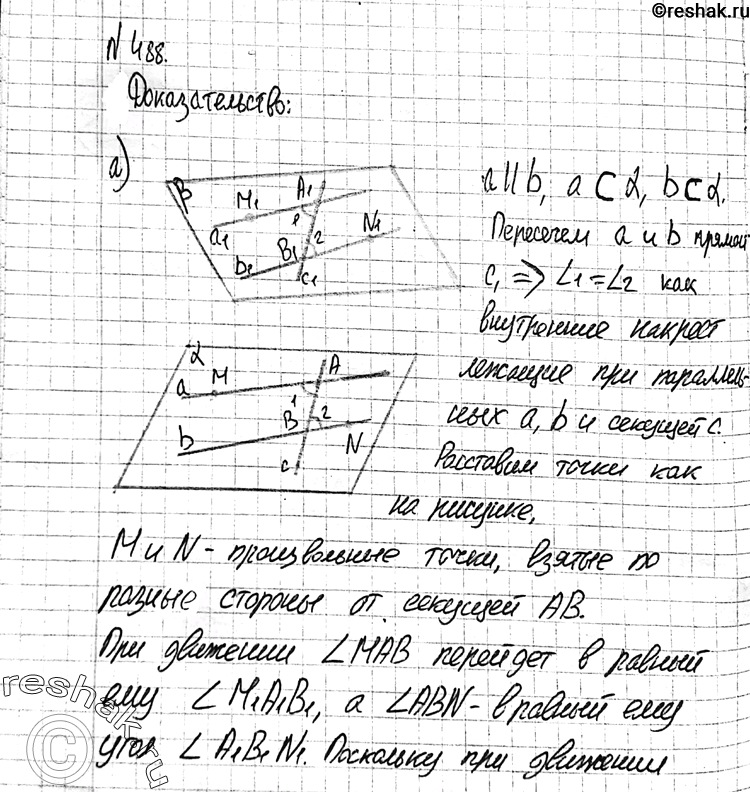 ©reshak.ru
N 488.
Доказательство:
а)
β M₁ A₁ N₁
a₁ 1
b₁ B₁ 2
c₁
a || b, a ⊂ α, b ⊂ α.
Пересечем a и b прямой
c, ⇒ ∠1 = ∠2 как
внутренние накрест
лежащие при параллель-
ных a, b и секущей c.
Расставим точки как
на рисунке,
α A
a M 1
b B 2 N
c
M и N - произвольные точки, взятые по
разные стороны от секущей AB.
При движении ∠MAB перейдет в равный
ему ∠M₁A₁B₁, а ∠ABN - в равный ему
угол ∠A₁B₁N₁. Поскольку при движении
reshak.ru
©